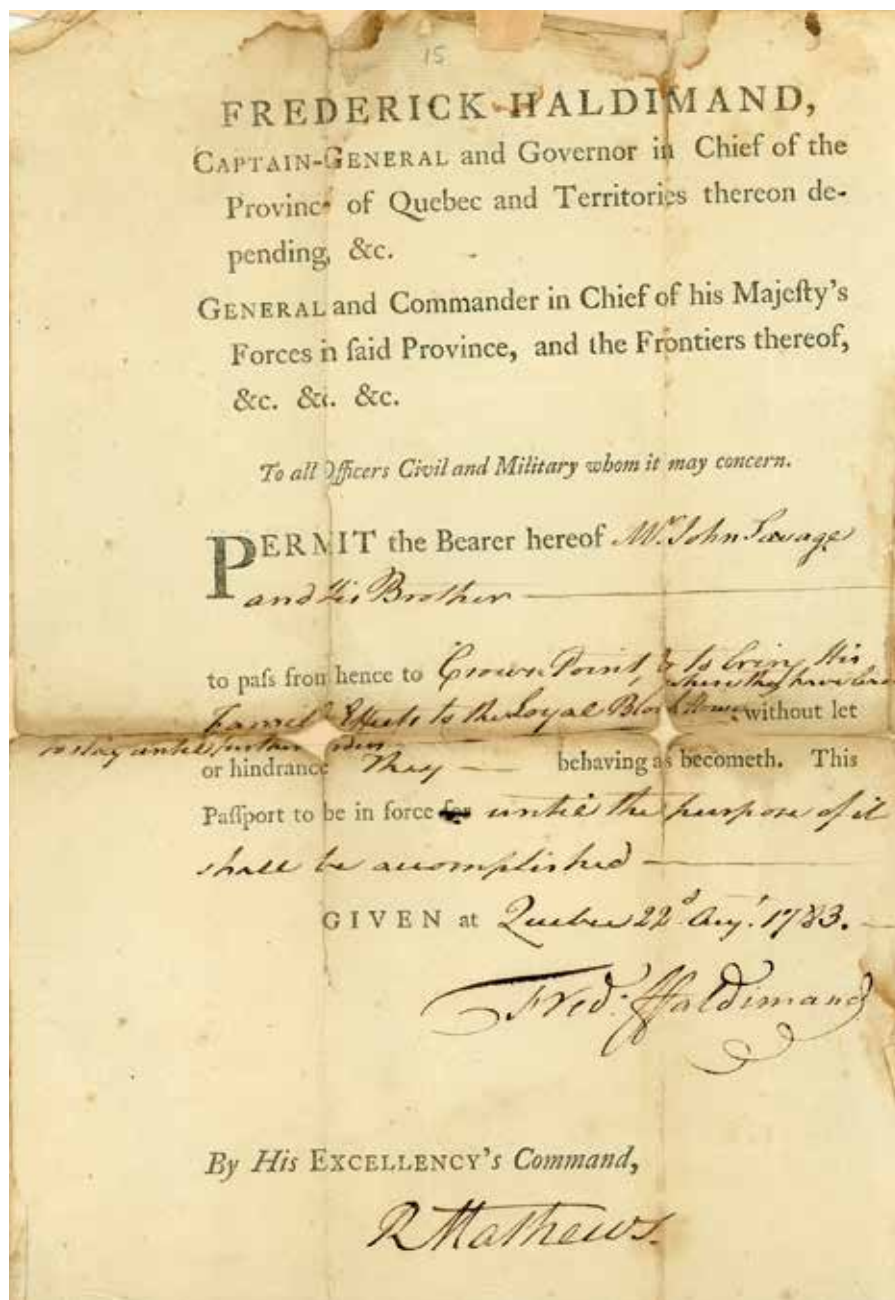 15
FREDERICK HALDIMAND,
CAPTAIN-GENERAL and Governor in Chief of the
Province of Quebec and Territories thereon de-
pending, &c.
GENERAL and Commander in Chief of his Majeſty's
Forces in ſaid Province, and the Frontiers thereof,
&c. &c. &c.
To all Officers Civil and Military whom it may concern.
PERMIT the Bearer hereof Mr. John Savage
and His Brother
to paſs from hence to Crown Point, & to bring His
where they have leave
Family & Effects to the Loyal Block House, without let
to stay until further orders
or hindrance They behaving as becometh. This
Paſſport to be in force for until the purpose of it
shall be accomplished
GIVEN at Quebec 22d. Augt. 1783.
Fred: Haldimand
By His EXCELLENCY's Command,
R Mathews.